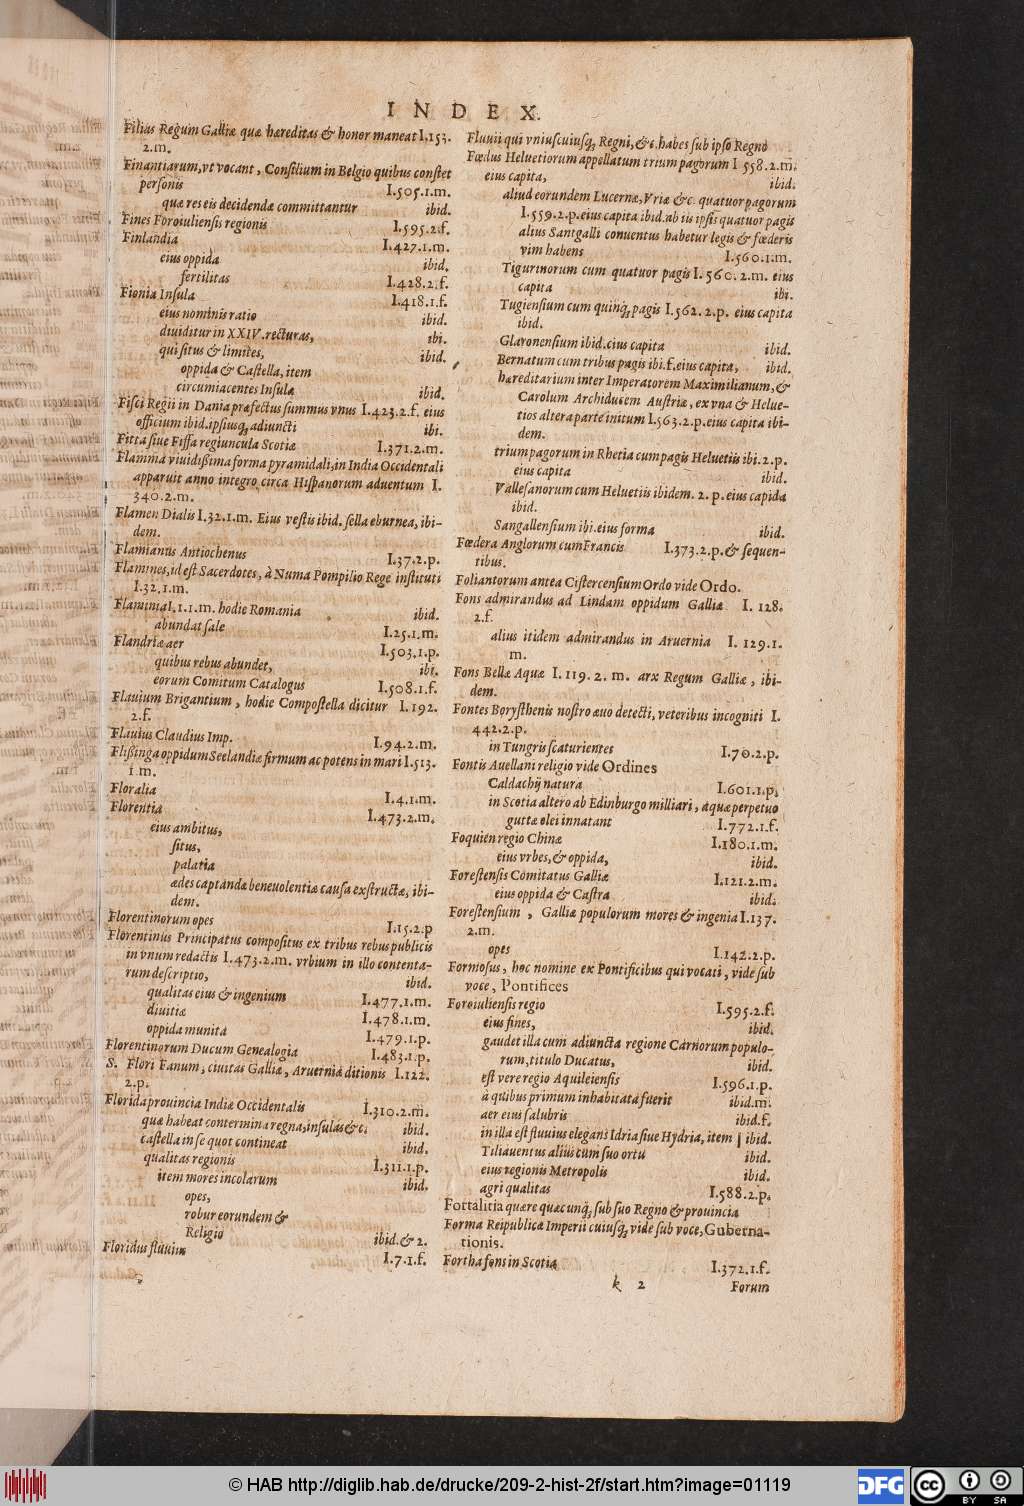 INDEX.
Filias Regum Galliæ quæ hæreditas & honor maneat I.153.
2.m.
Finantiarum, vt vocant, Consilium in Belgio quibus constet
personis I.505.1.m.
quæ res eis decidendæ committantur ibid.
Fines Foroiuliensis regionis I.595.2.f.
Finlandia I.427.1.m.
eius oppida ibid.
fertilitas I.428.2.f.
Fionia Insula I.418.1.f.
eius nominis ratio ibid.
diuiditur in XXIV. recturas, ibi.
qui situs & limites, ibid.
oppida & Castella, item
circumiacentes Insulæ ibid.
Fisci Regii in Dania præfectus summus vnus I.423.2.f. eius
officium ibid. ipsiusq; adiuncti ibi.
Fitta siue Fissa regiuncula Scotiæ I.371.2.m.
Flamma viuidißima forma pyramidali, in India Occidentali
apparuit anno integro circa Hispanorum aduentum I.
340.2.m.
Flamen Dialis I.32.1.m. Eius vestis ibid. sella eburnea, ibi-
dem.
Flamianus Antiochenus I.37.2.p.
Flamines, id est Sacerdotes, à Numa Pompilio Rege instituti
I.32.1.m.
Flaminia I.1.1.m. hodie Romania ibid.
abundat sale I.25.1.m.
Flandriæ aer I.503.1.p.
quibus rebus abundet, ibi.
eorum Comitum Catalogus I.508.1.f.
Flauium Brigantium, hodie Compostella dicitur I.192.
2.f.
Flauius Claudius Imp. I.94.2.m.
Flißinga oppidum Seelandiæ firmum ac potens in mari I.513.
1.m.
Floralia I.4.1.m.
Florentia I.473.2.m.
eius ambitus,
situs,
palatia
ædes captandæ beneuolentiæ causa exstructæ, ibi-
dem.
Florentinorum opes I.15.2.p
Florentinus Principatus compositus ex tribus rebus publicis
in vnum redactis I.473.2.m. vrbium in illo contenta-
rum descriptio, ibid.
qualitas eius & ingenium I.477.1.m.
diuitiæ I.478.1.m.
oppida munita I.479.1.p.
Florentinorum Ducum Genealogia I.483.1.p.
S. Flori Fanum, ciuitas Galliæ, Aruerniæ ditionis I.122.
2.p.
Florida prouincia Indiæ Occidentalis I.310.2.m.
quæ habeat contermina regna, insulas &c. ibid.
castella in se quot contineat ibid.
qualitas regionis I.311.1.p.
item mores incolarum ibid.
opes,
robur eorundem &
Religio ibid. & 2.
Floridus fluuius I.7.1.f.
Fluuii qui vniuscuiusq; Regni, &c. habes sub ipso Regno
Fœdus Heluetiorum appellatum trium pagorum I 558.2.m.
eius capita, ibid.
aliud eorundem Lucernæ, Vriæ &c. quatuor pagorum
I.559.2.p. eius capita ibid. ab iis ipsis quatuor pagis
alius Santgalli conuentus habetur legis & fœderis
vim habens I.560.1.m.
Tigurinorum cum quatuor pagis I.560.2.m. eius
capita ibi.
Tugiensium cum quinq; pagis I.562.2.p. eius capita
ibid.
Glaronensium ibid. eius capita ibid.
Bernatum cum tribus pagis ibi.f. eius capita, ibid.
hæreditarium inter Imperatorem Maximilianum, &
Carolum Archiducem Austriæ, ex vna & Helue-
tios altera parte initum I.563.2.p. eius capita ibi-
dem.
trium pagorum in Rhetia cum pagis Heluetiis ibi.2.p.
eius capita ibid.
Vallesanorum cum Heluetiis ibidem. 2.p. eius capida
ibid.
Sangallensium ibi. eius forma ibid.
Fœdera Anglorum cum Francis I.373.2.p. & sequen-
tibus.
Foliantorum antea Cistercensium Ordo vide Ordo.
Fons admirandus ad Lindam oppidum Galliæ I.128.
2.f.
alius itidem admirandus in Aruernia I.129.1.
m.
Fons Bellæ Aquæ I.119.2.m. arx Regum Galliæ, ibi-
dem.
Fontes Borysthenis nostro æuo detecti, veteribus incogniti I.
442.2.p.
in Tungris scaturientes I.70.2.p.
Fontis Auellani religio vide Ordines
Caldachij natura I.601.1.p.
in Scotia altero ab Edinburgo milliari, aquæ perpetuo
guttæ olei innatant I.772.1.f.
Foquien regio Chinæ I.180.1.m.
eius vrbes, & oppida, ibid.
Forestensis Comitatus Galliæ I.121.2.m.
eius oppida & Castra ibid.
Forestensium, Galliæ populorum mores & ingenia I.137.
2.m.
opes I.142.2.p.
Formosus, hoc nomine ex Pontificibus qui vocati, vide sub
voce, Pontifices
Foroiuliensis regio I.595.2.f.
eius fines, ibid.
gaudet illa cum adiuncta regione Carnorum populo-
rum, titulo Ducatus, ibid.
est vere regio Aquileiensis I.596.1.p.
à quibus primum inhabitata fuerit ibid.m.
aer eius salubris ibid.f.
in illa est fluuius elegans Idria siue Hydria, item ibid.
Tiliauentus alius cum suo ortu ibid.
eius regionis Metropolis ibid.
agri qualitas I.588.2.p.
Fortalitia quære quæcunq; sub suo Regno & prouincia
Forma Reipublicæ Imperii cuiusq; vide sub voce, Guberna-
tionis.
Fortha fons in Scotia I.372.1.f.
k 2 Forum
© HAB http://diglib.hab.de/drucke/209-2-hist-2f/start.htm?image=01119
DFG
cc BY SA